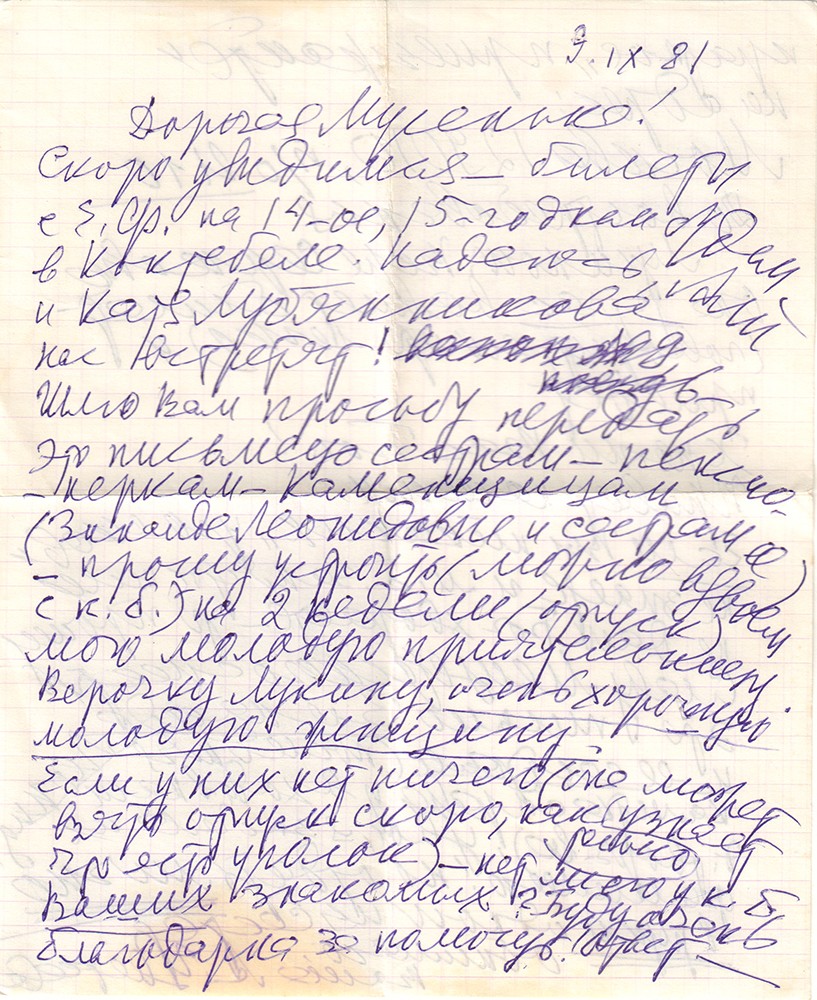 9. IX 81
Дорогая Мусенька!
Скоро увидимся – билеты
с Е. Ф. на 14-ое, 15-го
в Коктебеле. Надеюсь
и Катя
нас встретят!
Шлю Вам просьбу передать
это письмецо сестрам – пенсио-
-неркам – каменщицам
(Зинаиде Леонидовне и сестрам ее)
– прошу устроить (можно вдвоем
с к. б.) на 2 недели (отпуск)
мою молодую приятельницу
Верочку Лукину, очень хорошую
молодую женщину.
Если у них нет ничего (она может
взять отпуск скоро, как узнает
что есть уголок) – нет ли его у к. б.
Ваших знакомых? Буду очень
благодарна за помощь. Ответ –